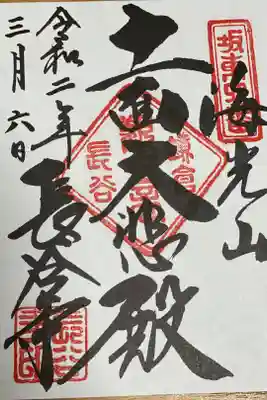 海光山
十一面大悲殿
長谷寺
令和二年
三月六日
坂東
鎌倉
長谷